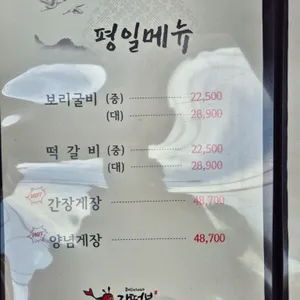 평일메뉴
보리굴비 (중) 22,500
(대) 28,900
떡 갈 비 (중) 22,500
(대) 28,900
간장게장 48,700
양념게장 48,700
Delicious